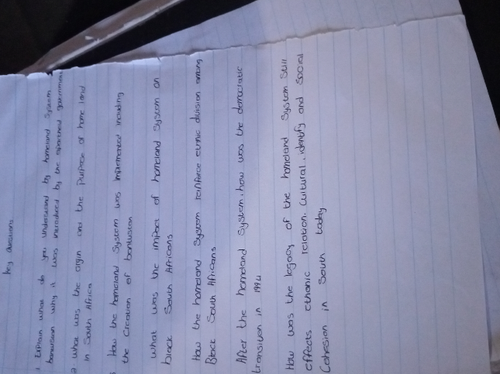 key questions
Explain what do you understand by homeland system
bantustan why it was introduced by the apartheid government
2 what was the orgin and the purpose of home land
in South Africa
How the homeland system was implemented including
the creation of bantustan
what was the impact of homeland system on
black South Africans
How the homeland system reinforce ethnic division among
Black South Africans
After the homeland system, how was the democratic
transition in 1994
How was the legacy of the homeland system still
effects ethanic relation, cultural identity and social
Cohesion in South today